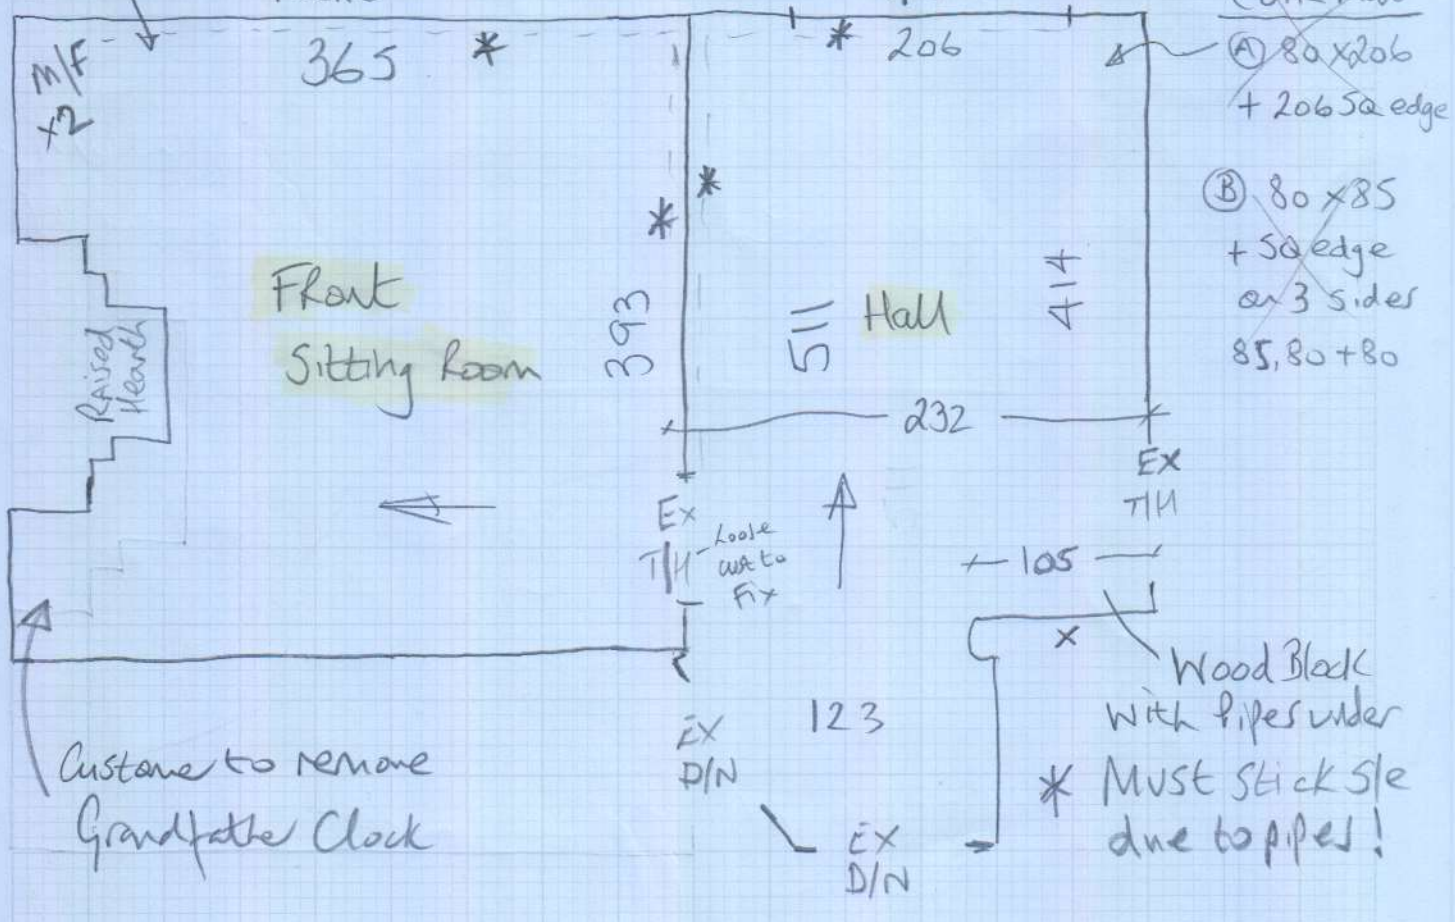 M/F
+2
365 *
* 206
(A) 80 x 206
+ 206 SQ edge
*
*
(B) 80 x 85
+ SQ edge
on 3 sides
85, 80 + 80
Front
Sitting Room
Raised
Hearth
393
511
Hall
414
232
Ex
T/H
Ex
T/H
Loose
Fix
105
x
Wood Block
with Pipes under
* Must Stick S/e
due to pipes!
123
EX
D/N
EX
D/N
Custome to remove
Grandfather Clock